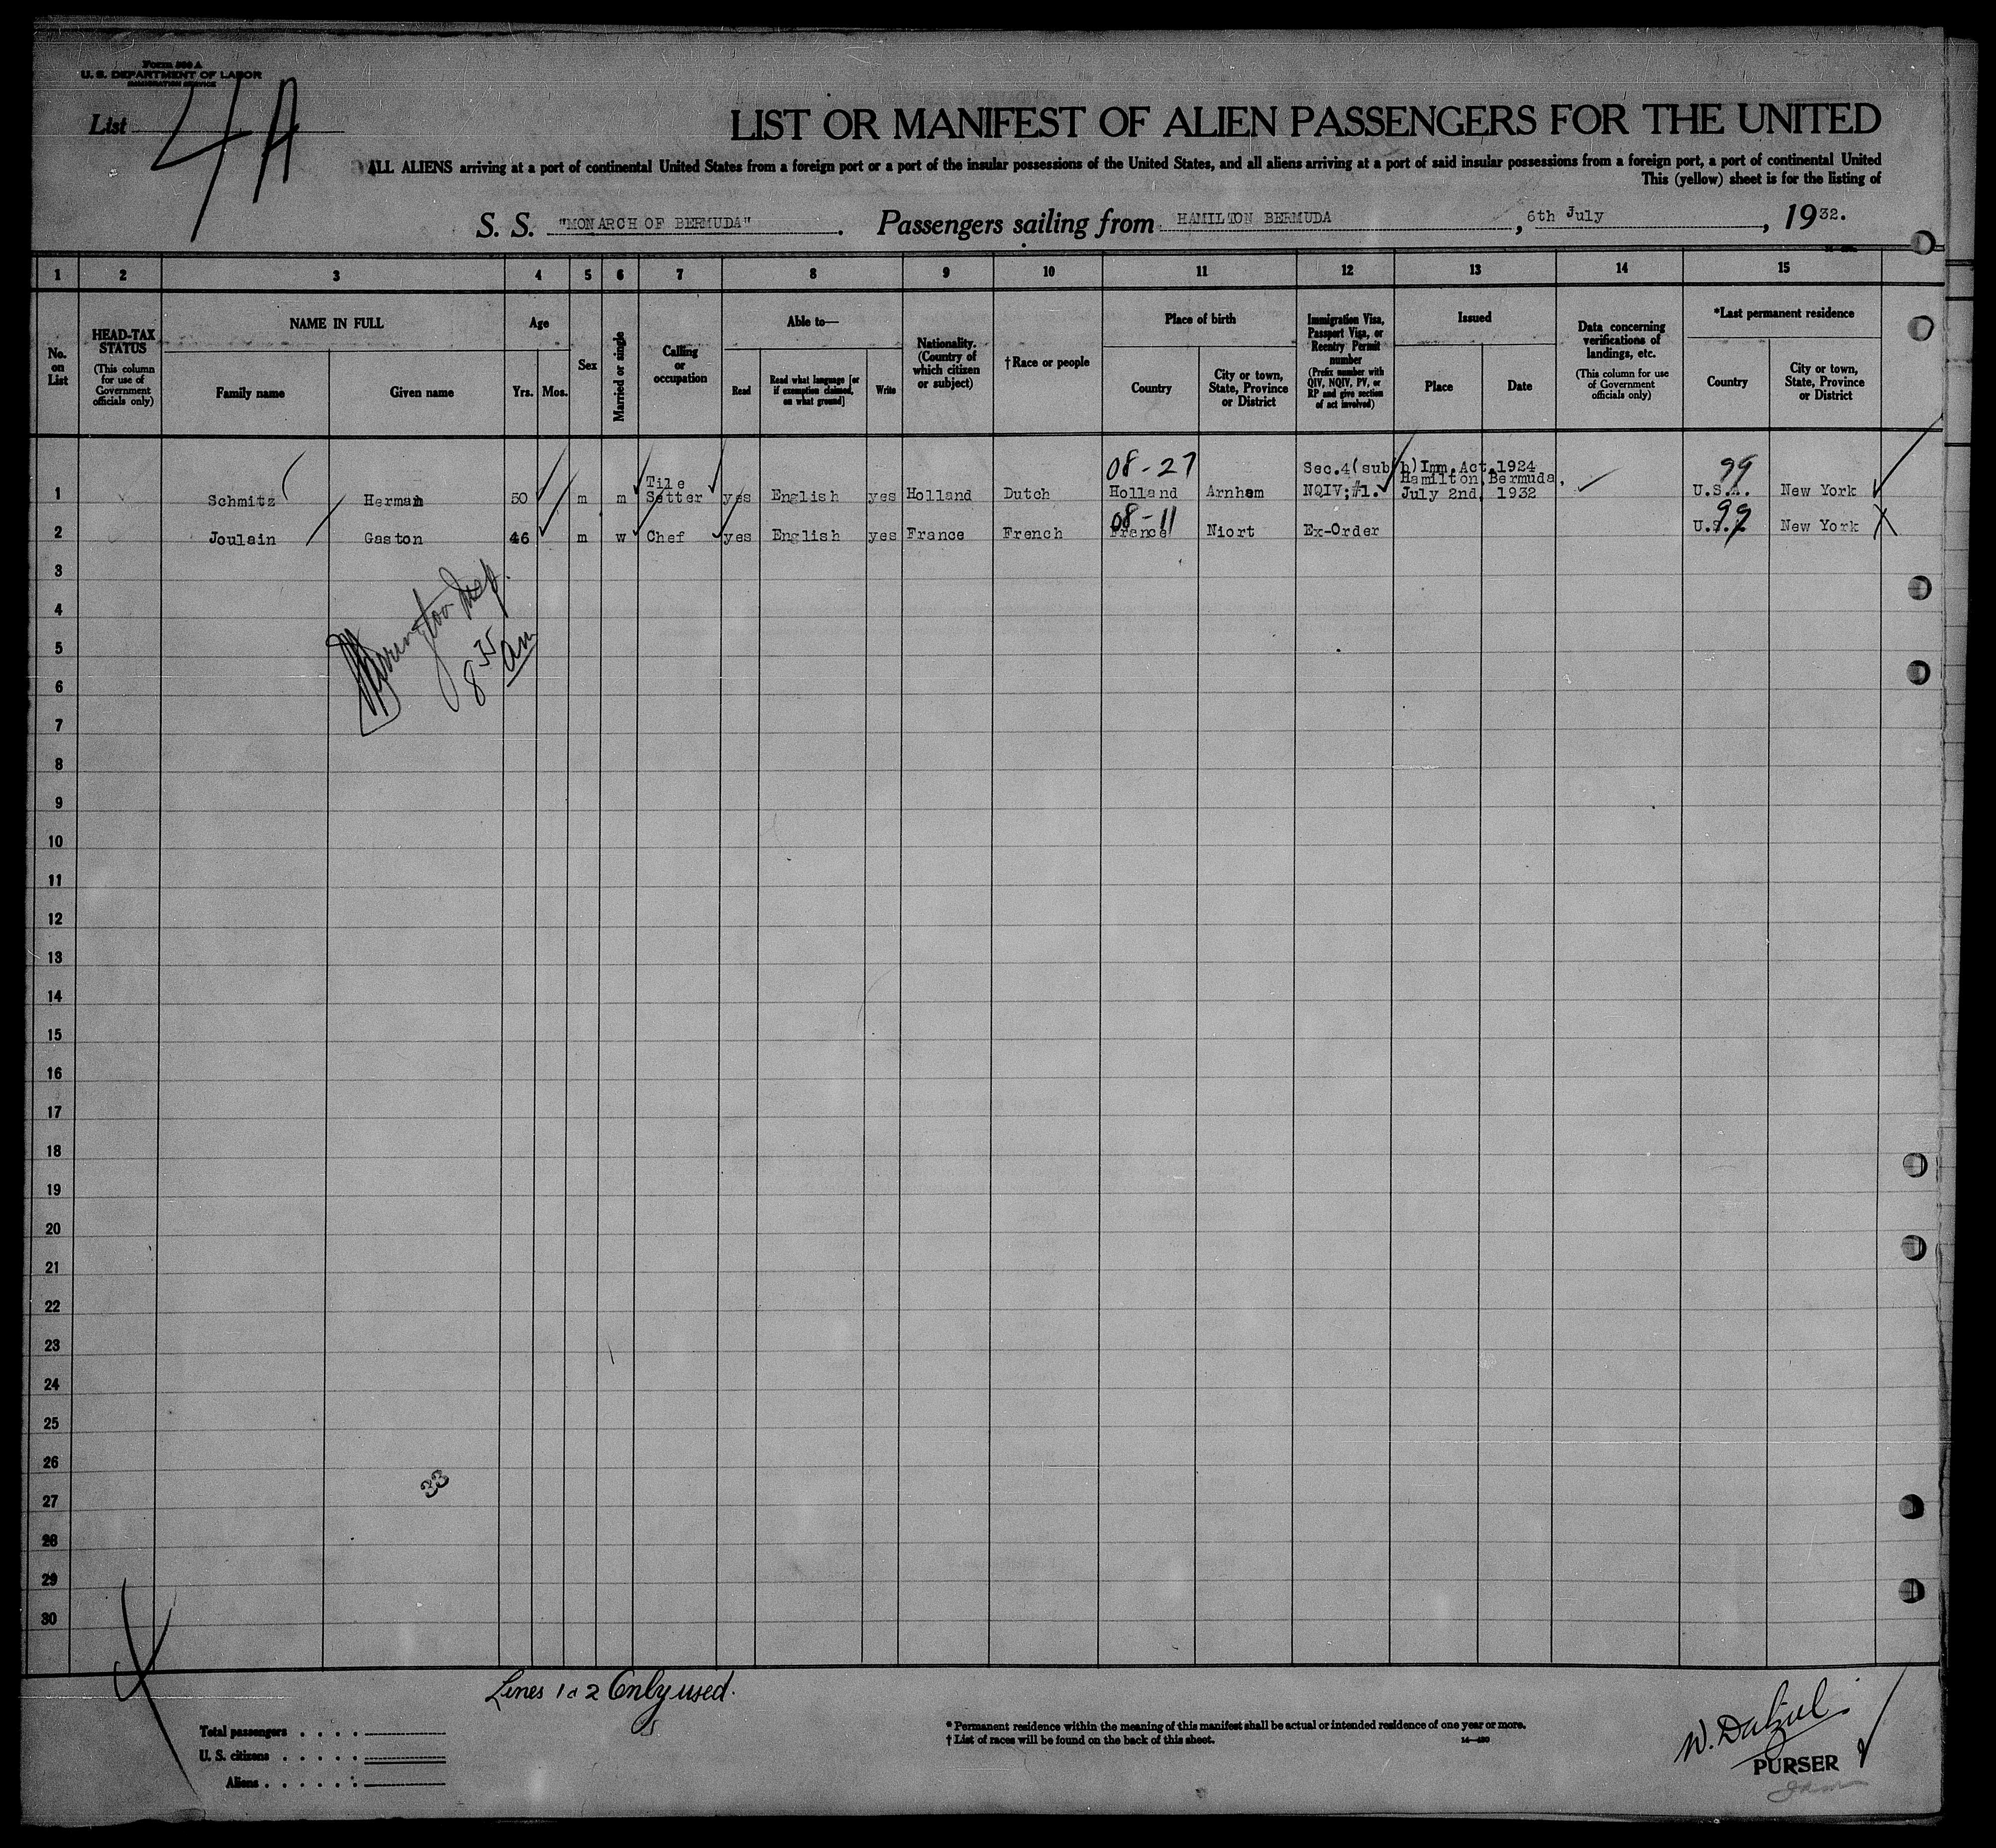 Form 500 A
U. S. DEPARTMENT OF LABOR
IMMIGRATION SERVICE
List 4A
LIST OR MANIFEST OF ALIEN PASSENGERS FOR THE UNITED
ALL ALIENS arriving at a port of continental United States from a foreign port or a port of the insular possessions of the United States, and all aliens arriving at a port of said insular possessions from a foreign port, a port of continental United
This (yellow) sheet is for the listing of
S. S. "MONARCH OF BERMUDA". Passengers sailing from HAMILTON BERMUDA, 6th July, 1932.
1 2 3 4 5 6 7 8 9 10 11 12 13 14 15
No. on List
HEAD-TAX STATUS
(This column for use of Government officials only)
NAME IN FULL
Family name Given name
Age
Yrs. Mos.
Sex
Married or single
Calling or occupation
Able to—
Read Read what language [or if exemption claimed, on what ground] Write
Nationality. (Country of which citizen or subject)
†Race or people
Place of birth
Country City or town, State, Province or District
Immigration Visa, Passport Visa, or Reentry Permit number
(Prefix number with QIV, NQIV, PV, or RP and give section of act involved)
Issued
Place Date
Data concerning verifications of landings, etc.
(This column for use of Government officials only)
*Last permanent residence
Country City or town, State, Province or District
08-27 Sec.4(sub b)Imm.Act.1924 99
Tile Hamilton Bermuda.
1 Schmitz Herman 50 m m Setter yes English yes Holland Dutch Holland Arnhem NQIV:#1. July 2nd. 1932 U.S.A. New York
08-11 99
2 Joulain Gaston 46 m w Chef yes English yes France French France Niort Ex-Order U.S.A. New York
3
4
5
6
8 35 am
7
8
9
10
11
12
13
14
15
16
17
18
19
20
21
22
23
24
25
26
33
27
28
29
30
Lines 1 & 2 Only used.
Total passengers . . . .
U. S. citizens . . . . .
Aliens . . . . . .
* Permanent residence within the meaning of this manifest shall be actual or intended residence of one year or more.
† List of races will be found on the back of this sheet.
W. Dalziel
PURSER